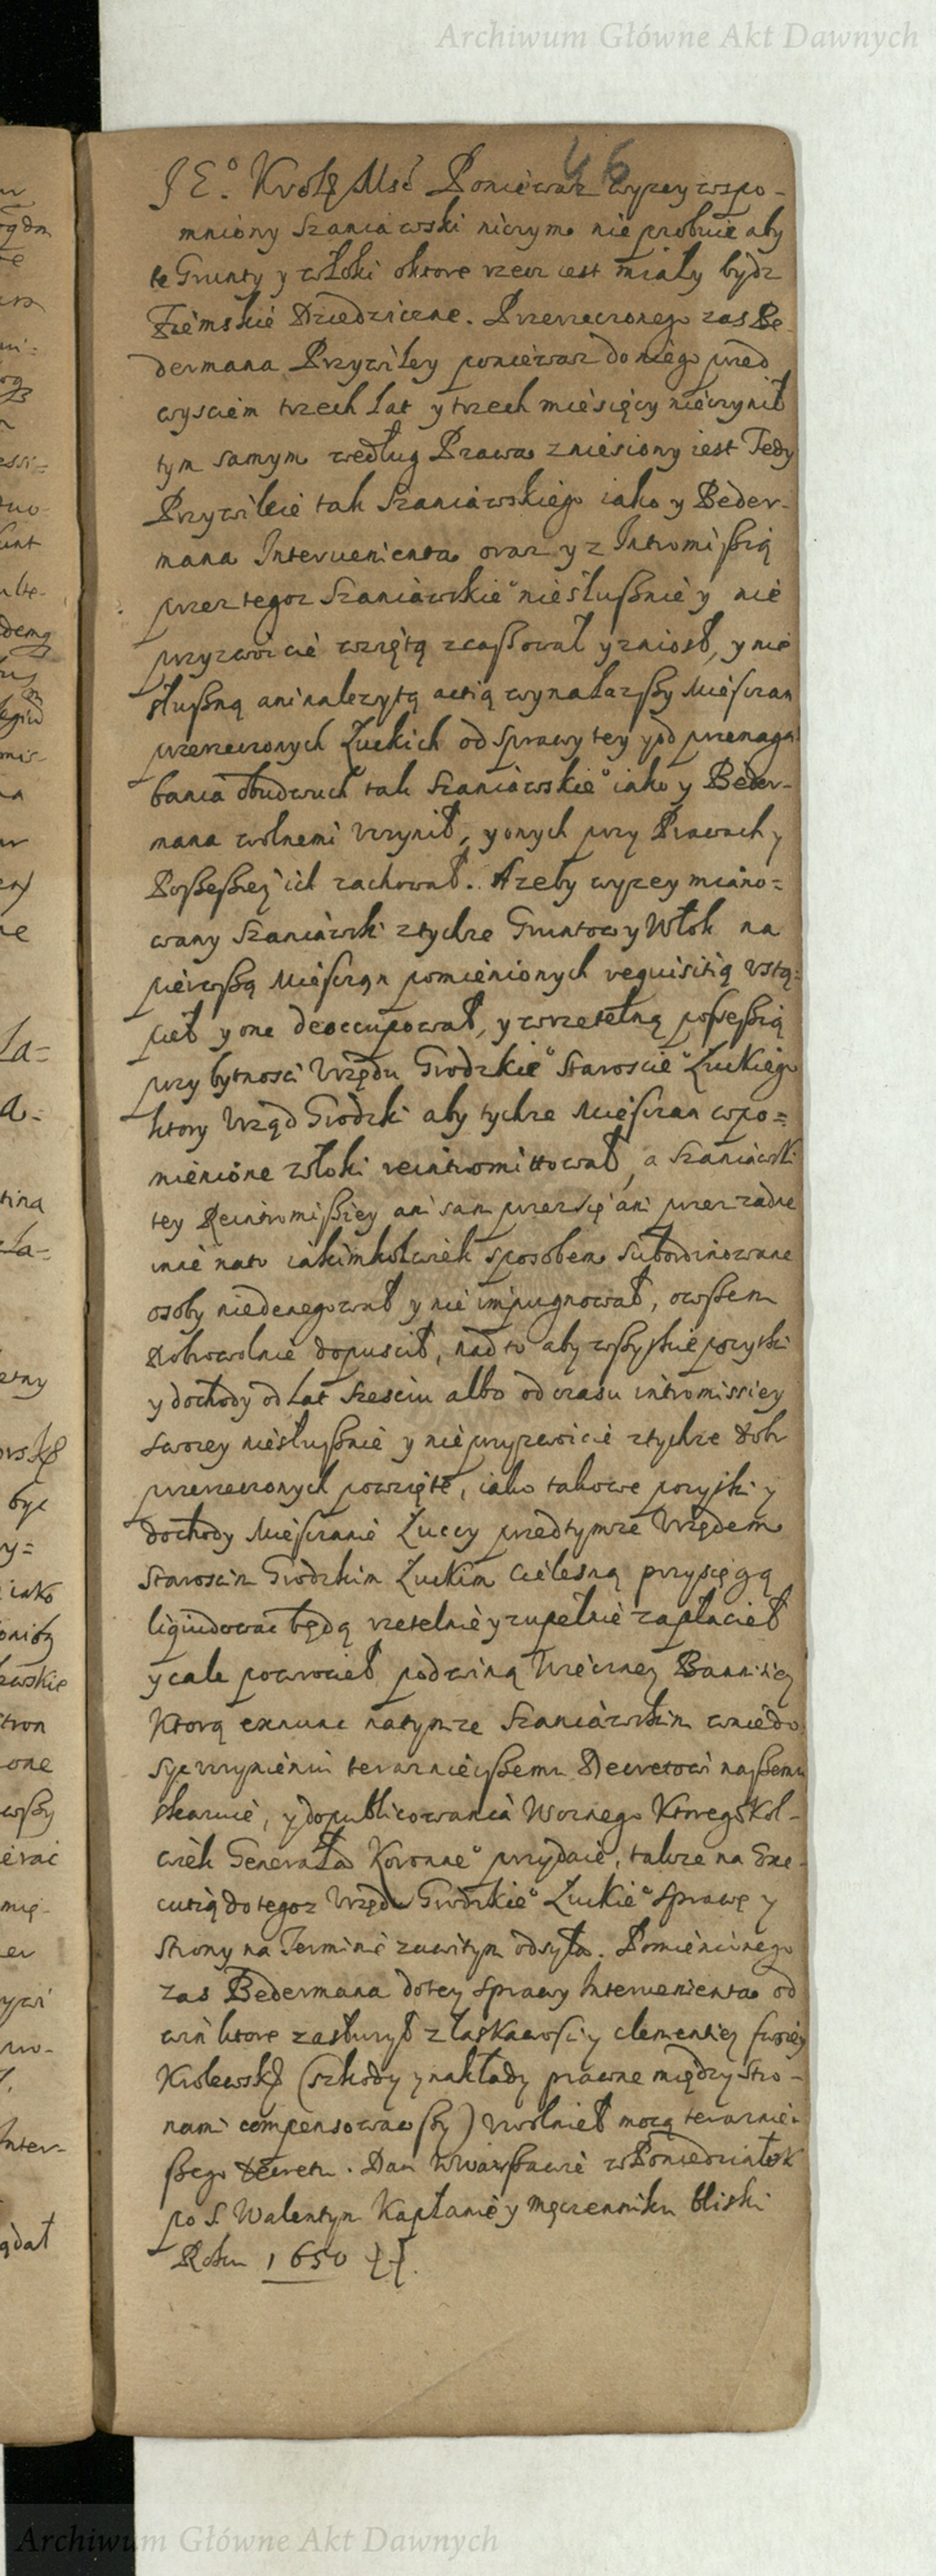 Archiwum Główne Akt Dawnych
46
JEº Krolę Msć Ponieważ wyzey wspo-
mniony Szaniawski niczym nie probuie aby
te Grunty y włoki oktore rzecz iest miały bydz
Ziemskie Dziedziczne. Przerzeczonego zas Be-
dermana Przywiley poniewasz do niego przed
wysciem trzech Lat y trzech miesięcy nieczynił
tym samym według Prawa zniesiony iest Tedy
Przywileie tak Szaniawskiego iako y Beder-
mana Interuenienta oraz y z Intromißią
przez tegoz Szaniawskieº niesłußnie y nie
przyzwoicie wziętą zcaßował y zniosł, y nie
słußną ani należytą actią wynalazßy Miesczan
przerzeczonych Łuckich od sprawy tey y od przenaga
bania obudwuch tak Szaniawskieº iako y Beder-
mana wolnemi vczynił, y onych przy Prawach y
Poßeßiey ich zachował. Azeby wyzey miano=
wany Szaniawski ztychze Gruntow y Włok na
pierwßą Miesczan pomienionych requisitią vstą=
pieł y one deoccupował, y wrzetelną poßeßią
przy bytnosci Vrzędu Grodzkieº Staroscieº Łuckiego
ktory Vrząd Grodzki aby tychze Miesczan wpo=
mienione włoki reintromittował, a Szaniawski
tey Reintromißiey ani sam przez się ani przez zadne
inne nato iakimkolwiek sposobem subordinowane
osoby niedenegował y nie impugnował, owßem
dobrowolnie dopuscił, nad to aby wßyskie pozytki
y dochody od Lat szesciu albo od czasu intromissiey
swoiey niesłußnie y nieprzyzwoicie ztychze dobr
przerzeczonych powzięte, iako takowe pozytki y
dochody Miesczanie Łuccy przed tymze Vrzędem
Staroscim Grodzkim Łuckim cielesną przysięgą
liquidować będą rzetelnie y zupełnie zapłacieł
y cale powrocieł pod winą Wieczney Bannitiey
Ktorą exnunc na tymze Szaniawskim wniedo
syc vczynieniu terazniejßemu Decretowi naßemu
skazuie, y dopublicowania Woznego Ktoregokol-
wiek Generała Koronneº przydaie, takze na Exe-
cutią do tegoz Vrzędu Grodzkieº Łuckieº sprawę y
strony na Terminie zawitym odsyła. Pomienionego
zas Bedermana do tey sprawy Interuenienta od
win ktore zasłuzył z łaskawosci y clementiey swoiey
Krolewskę (szkody y nakłady prawne między stro-
nami compensowawßy) vwolnieł mocą teraznie-
ßego decretu. Dan w Warßawie w Poniedziałek
po S. Walentym Kapłanie y męczenniku bliski
Roku 1650
Archiwum Główne Akt Dawnych